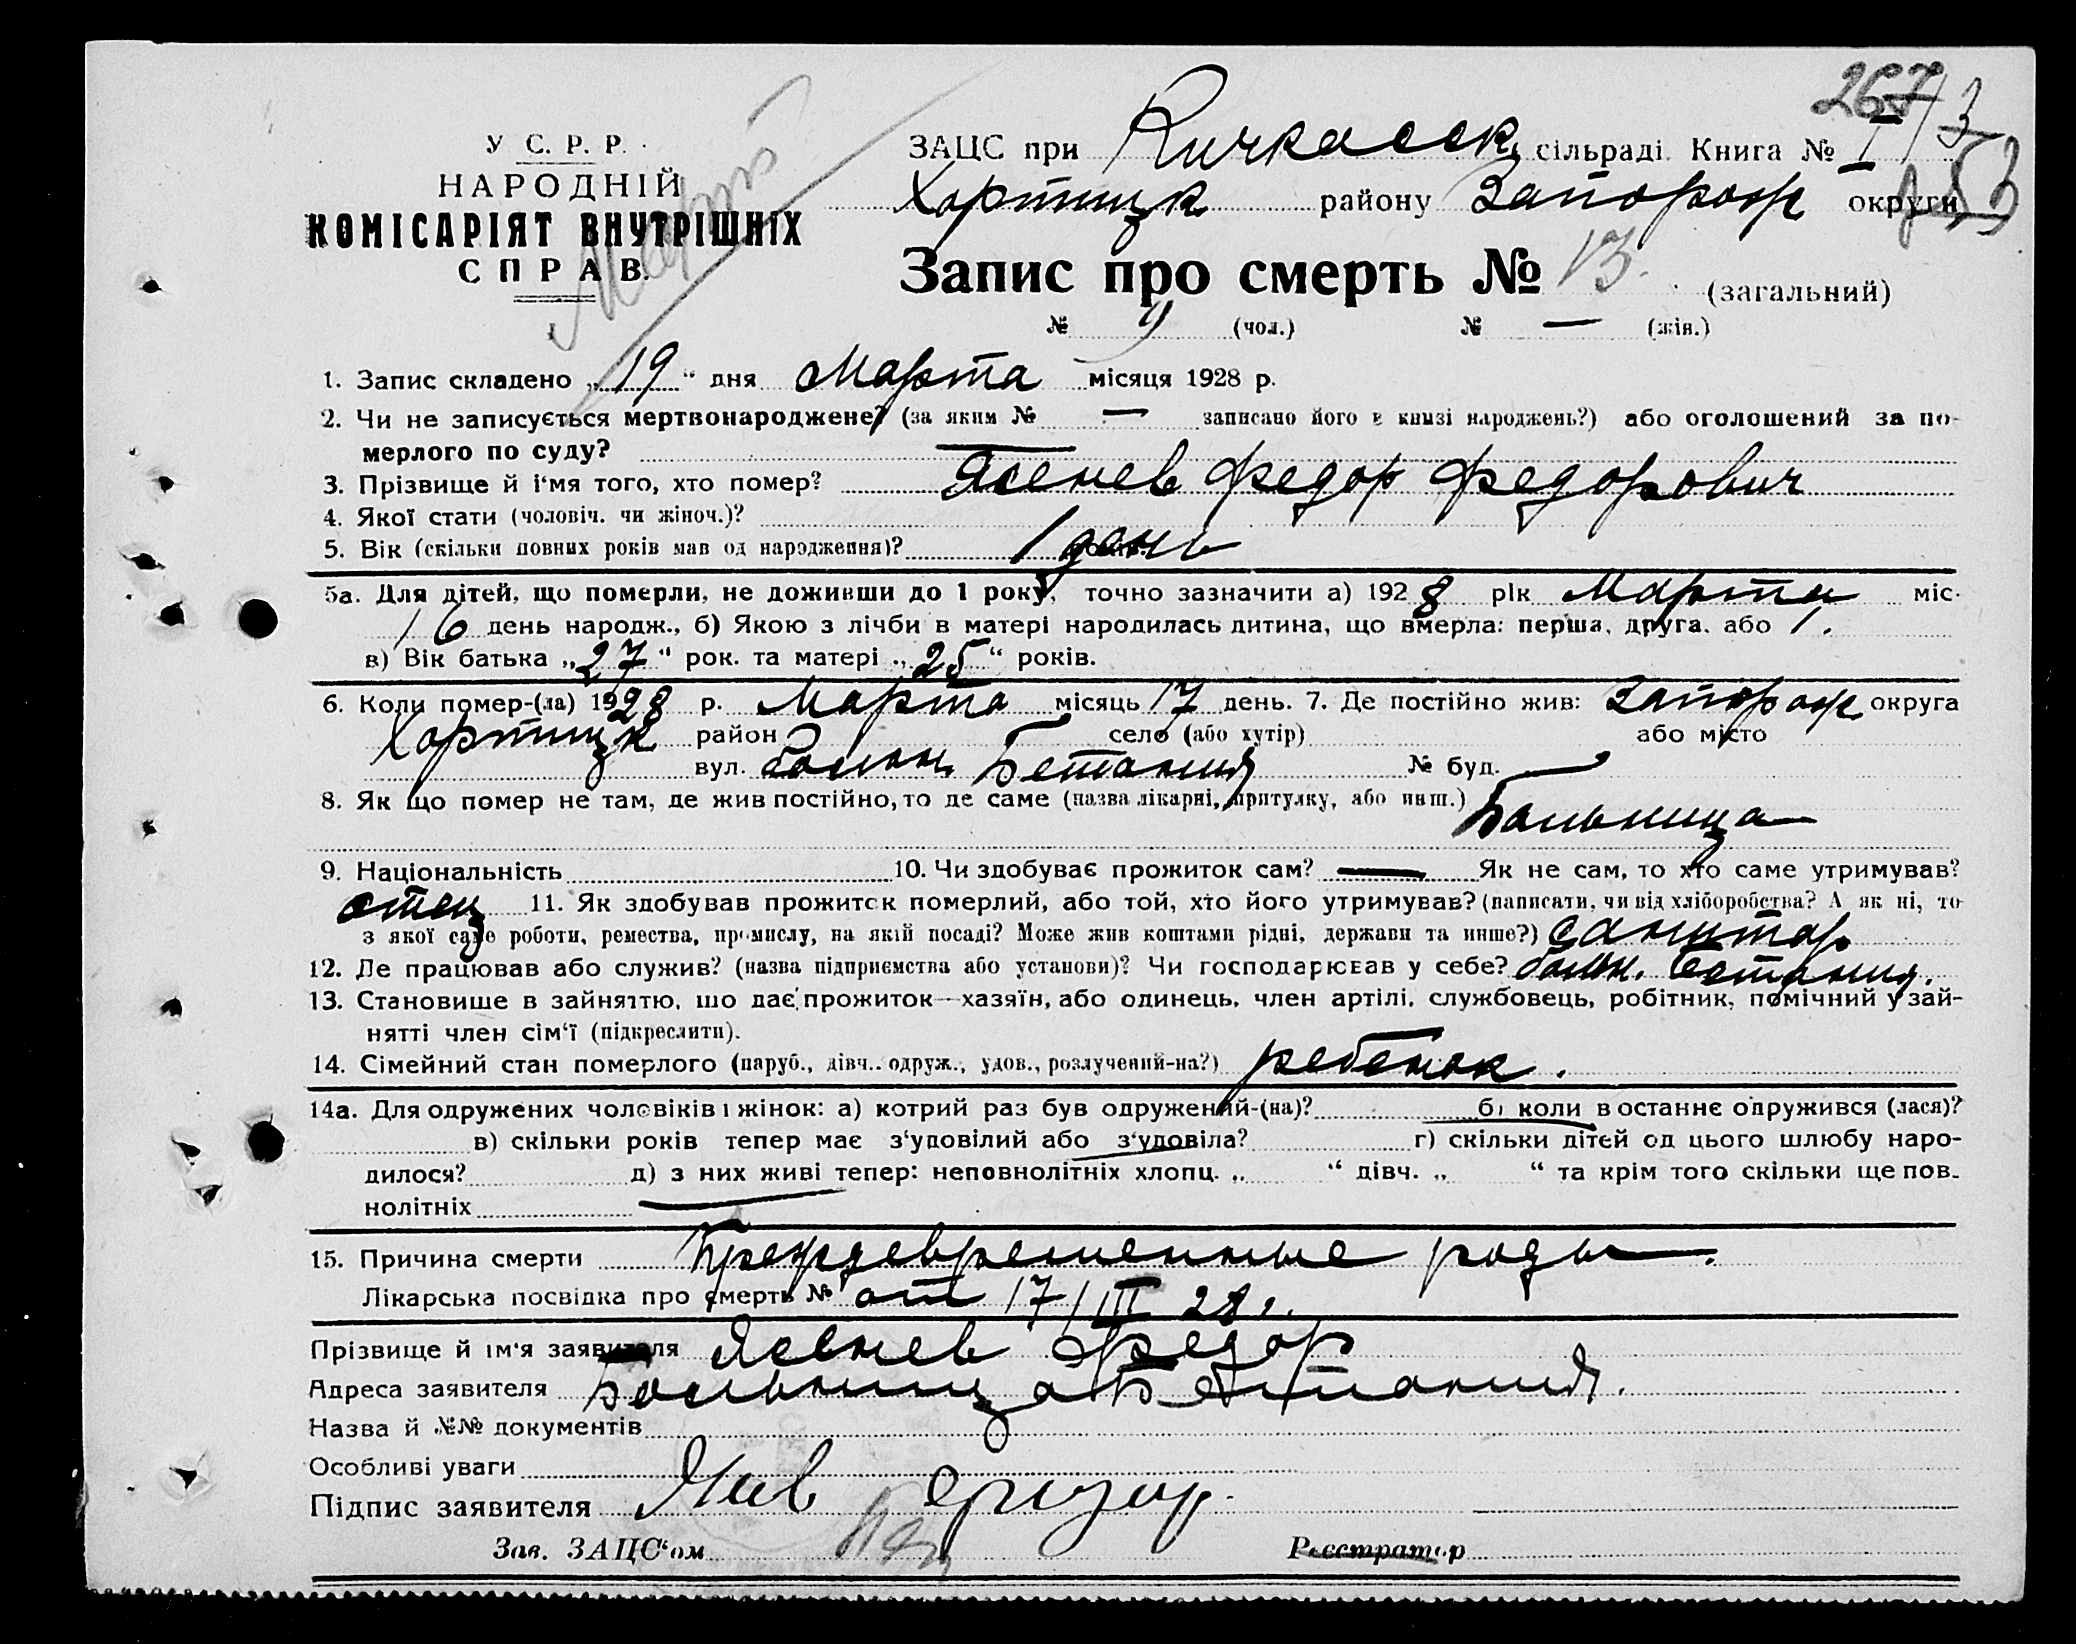 У С. Р. Р.
НАРОДНІЙ
КОМІСАРІЯТ ВНУТРІШНІХ
СПРАВ.
Март
267/3
ЗАЦС при Кичкасск. сільраді. Книга № I
Хортицк району Запорож округи
Запис про смерть № 13. (загальний)
№ 9 (чол.) № — (жін.)
1. Запис складено „19“ дня Марта місяця 1928 р.
2. Чи не записується мертвонароджене? (за яким № — записано його в книзі народжень?) або оголошений за по-
мерлого по суду? —
3. Прізвище й і‘мя того, хто помер? Ясенев Федор Федорович
4. Якої стати (чоловіч. чи жіноч.)?
5. Вік (скільки повних років мав од народження)? 1 день
5а. Для дітей, що померли, не доживши до 1 року, точно зазначити а) 1928 рік Марта міс.
16 день народж., б) Якою з лічби в матері народилась дитина, що вмерла: перша, друга. або 1.
в) Вік батька „27“ рок. та матері „25“ років.
6. Коли помер-(ла) 1928 р. Марта місяць 17 день. 7. Де постійно жив: Запорож округа
Хортицк район село (або хутір) або місто
вул. больн. Бетания № буд. —
8. Як що помер не там, де жив постійно, то де саме (назва лікарні, притулку, або инш.) Больница
9. Національність 10. Чи здобуває прожиток сам? — Як не сам, то хто саме утримував?
отец 11. Як здобував прожиток померлий, або той, хто його утримував? (написати, чи від хліборобства? А як ні, то
з якої саме роботи, ремества, промислу, на якій посаді? Може жив коштами рідні, держави та инше?) санитар
12. Де працював або служив? (назва підприємства або установи)? Чи господарював у себе? больн. Бетания.
13. Становище в зайняттю, що дає прожиток—хазяїн, або одинець, член артілі, службовець, робітник, помічний у зай-
нятті член сім‘ї (підкреслити).
14. Сімейний стан померлого (паруб., дівч.. одруж., удов., розлучений-на?) ребенок.
14а. Для одружених чоловіків і жінок: а) котрий раз був одружений-(на)? б) коли в останнє одружився (лася)?
в) скільки років тепер має з‘удовілий або з‘удовіла? г) скільки дітей од цього шлюбу наро-
дилося? д) з них живі тепер: неповнолітніх хлопц. „ “ дівч. „ “ та крім того скільки ще пов-
нолітніх —
15. Причина смерти Преждевременные роды.
Лікарська посвідка про смерть № от 17/III 28 г.
Прізвище й ім‘я заявителя Ясенев Федор
Адреса заявителя Больница Бетания.
Назва й №№ документів
Особливі уваги
Підпис заявителя
Зав. ЗАЦС‘ом
Реєстратор